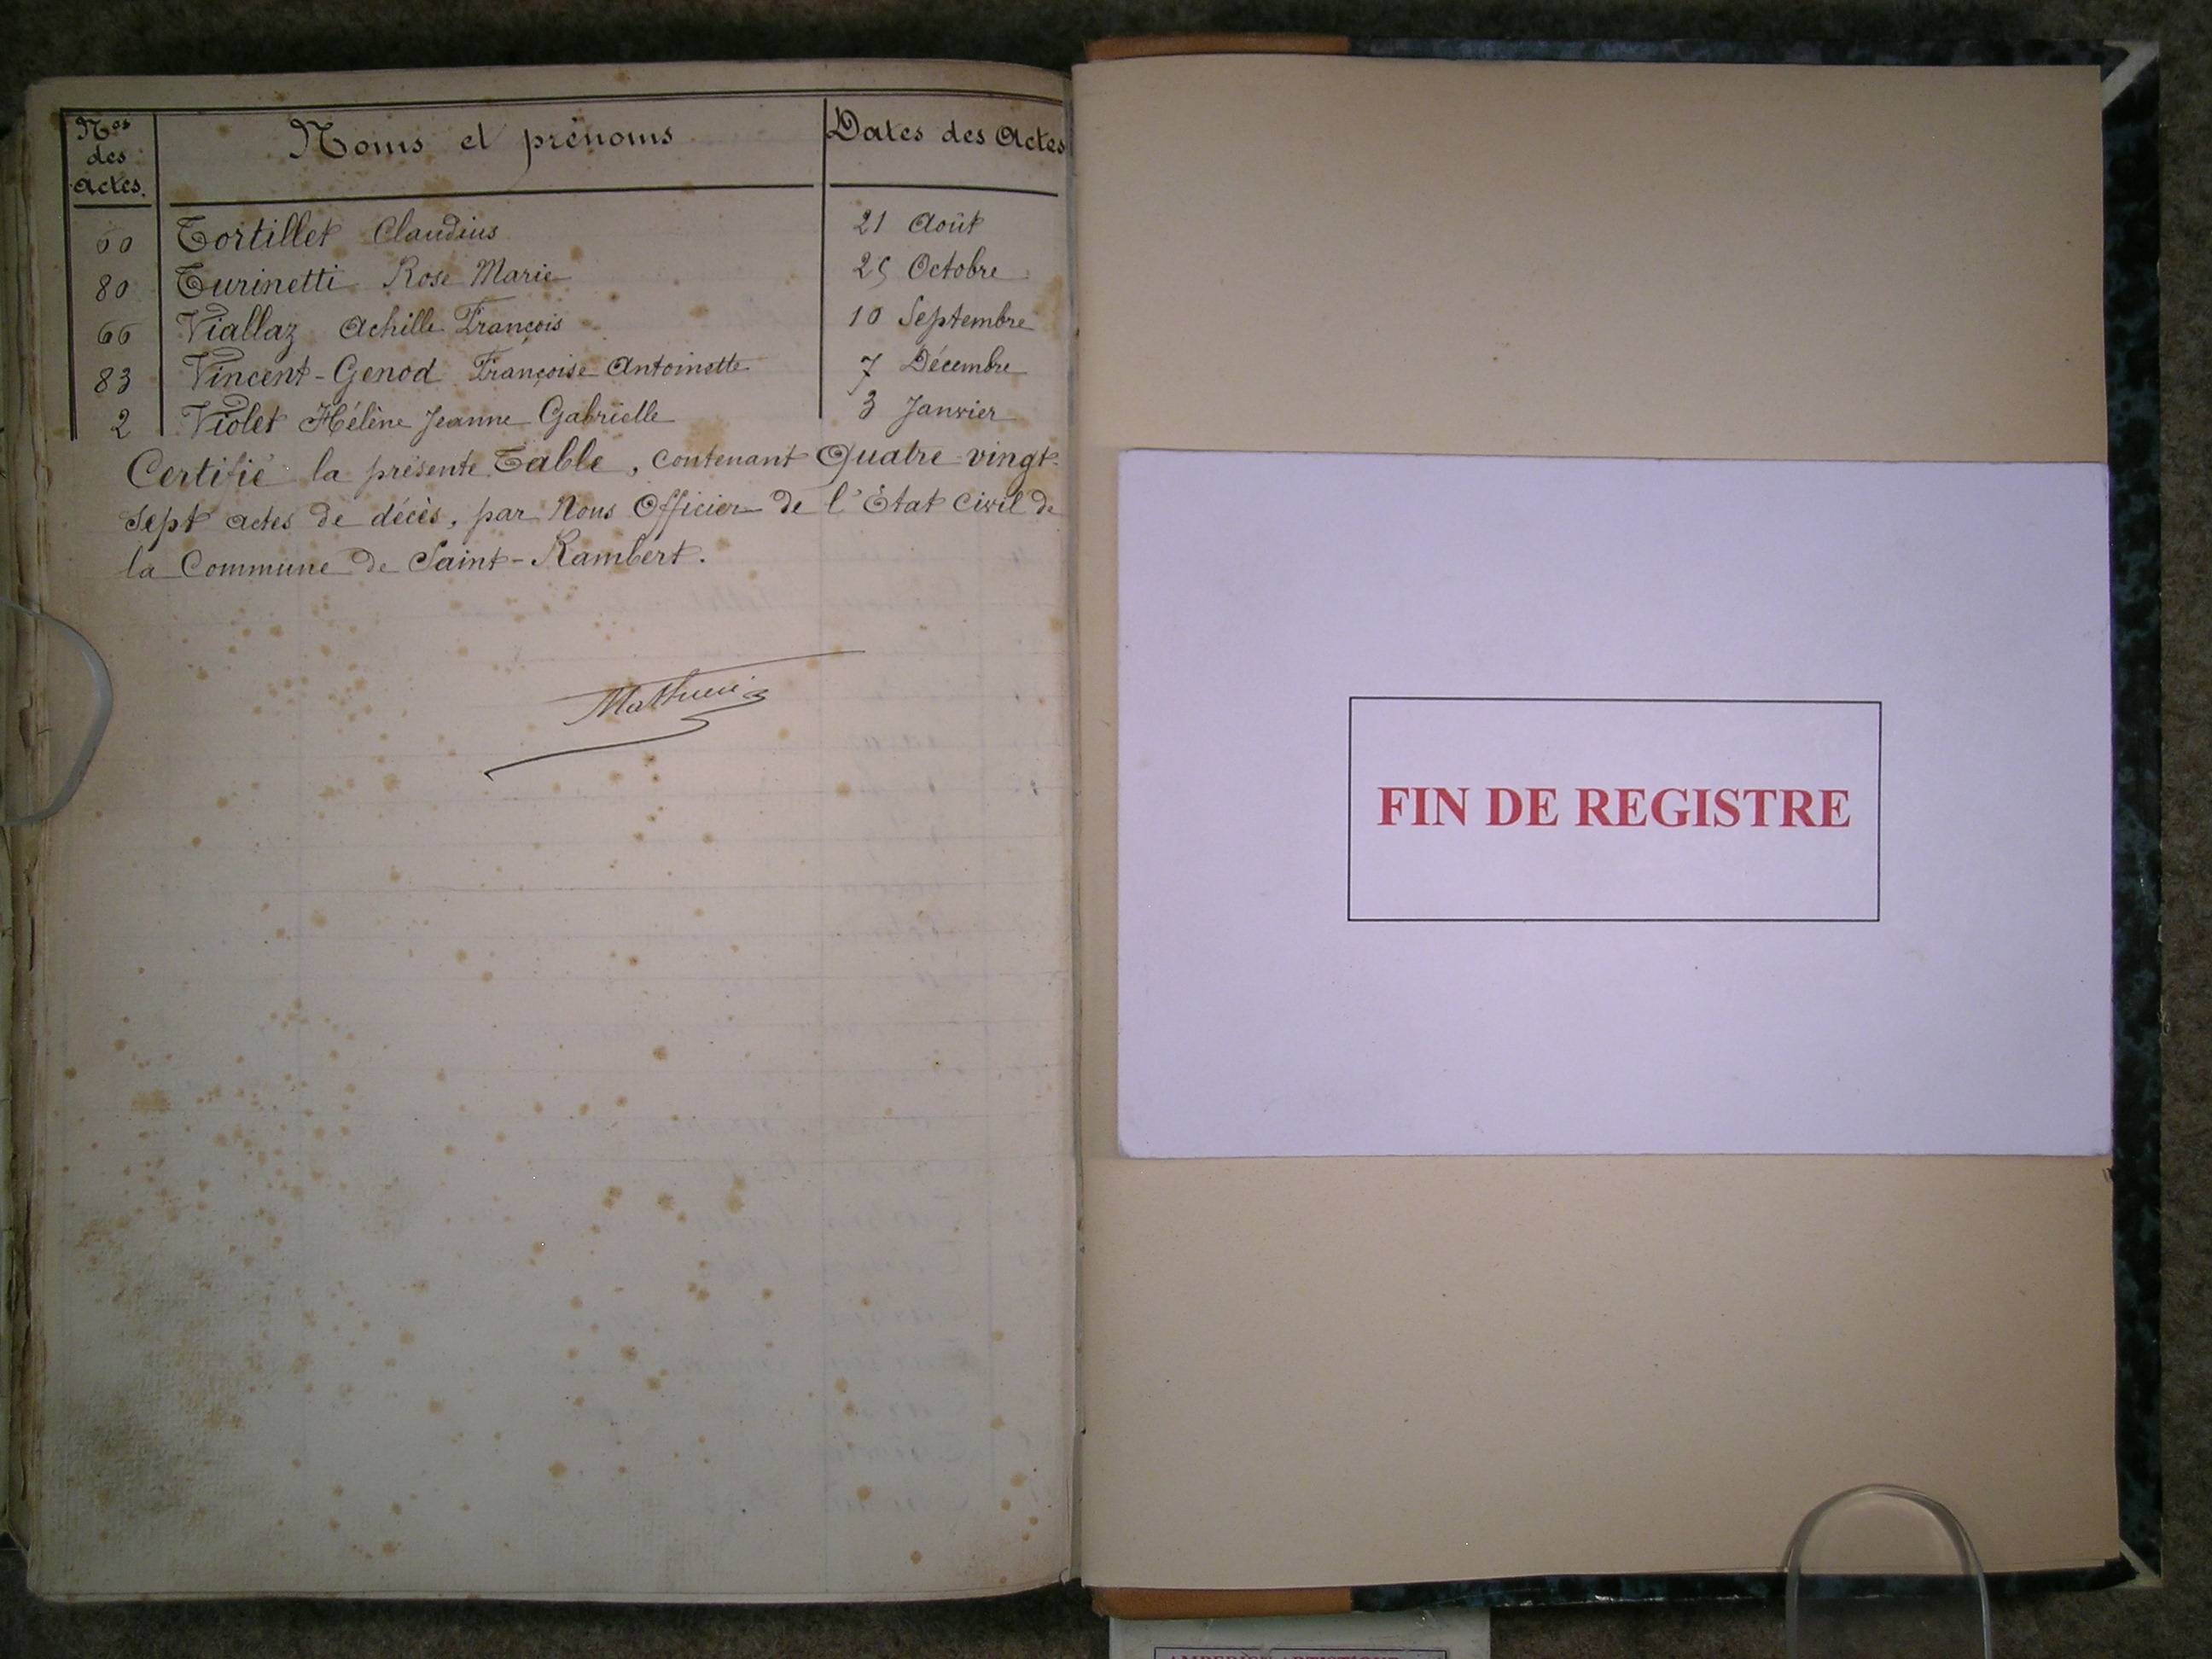 Nos des actes.
Noms et prénoms
Dates des Actes
60 Tortillet Claudius 21 Août
80 Turinetti Rose Marie 25 Octobre
66 Viallaz Achille François 10 Septembre
83 Vincent-Genod Françoise Antoinette 7 Décembre
2 Violet Hélène Jeanne Gabrielle 3 Janvier
Certifié la présente Table, contenant Quatre-vingt-
sept actes de décès, par Nous Officier de l'État civil de
la Commune de Saint-Rambert.
FIN DE REGISTRE